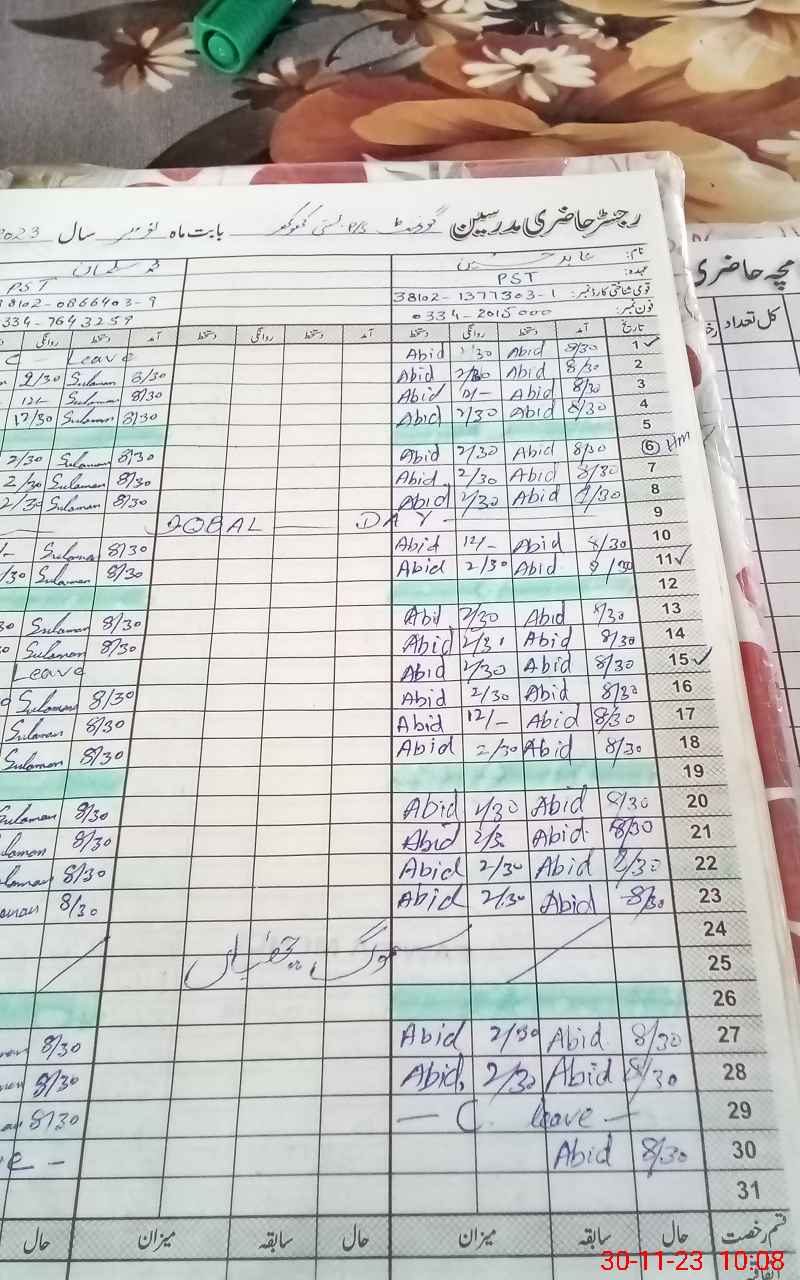 رجسٹر حاضری مدرسین گورنمنٹ بابت ماہ نومبر سال 2023
نام: عابد حسین
عہدہ: PST PST
قومی شناختی کارڈ نمبر: 38102-1377303-1 38102-0866403-9
فون نمبر: 0334-2015000 334-7643259
تاریخ آمد دستخط روانگی دستخط آمد دستخط روانگی دستخط آمد دستخط
1 8/30 Abid Abid Leave C
2 8/30 Abid 2/30 Abid 8/30 Sulaman 2/30
3 8/30 Abid 12/- Abid 8/30 Sulaman 12/-
4 8/30 Abid 2/30 Abid 8/30 Sulaman 12/30
5
6 Hm 8/30 Abid 2/30 Abid 8/30 Sulaman 2/30
7 8/30 Abid 2/30 Abid 8/30 Sulaman 2/30
8 Abid 2/30 Abid 8/30 Sulaman 2/30
9 IQBAL DAY
10 8/30 Abid 12/- Abid 8/30 Sulaman
11 8/30 Abid 2/30 Abid 8/30 Sulaman
12
13 8/30 Abid 2/30 Abid 8/30 Sulaman
14 8/30 Abid Abid 8/30 Sulaman
15 8/30 Abid 2/30 Abid Leave
16 8/30 Abid 2/30 Abid 8/30 Sulaman
17 8/30 Abid 12/- Abid 8/30 Sulaman
18 8/30 Abid 2/30 Abid 8/30 Sulaman
19
20 8/30 Abid Abid 8/30 Sulaman
21 8/30 Abid Abid 8/30
22 Abid 2/30 Abid 8/30
23 8/30 Abid 2/30 Abid 8/30
24
25
26
27 8/30 Abid 2/30 Abid 8/30
28 8/30 Abid 2/30 Abid 8/30
29 C. leave 8/30
30 8/30 Abid
31
قسم رخصت حال سابقہ میزان حال سابقہ میزان حال
کل تعداد
30-11-23 10:08